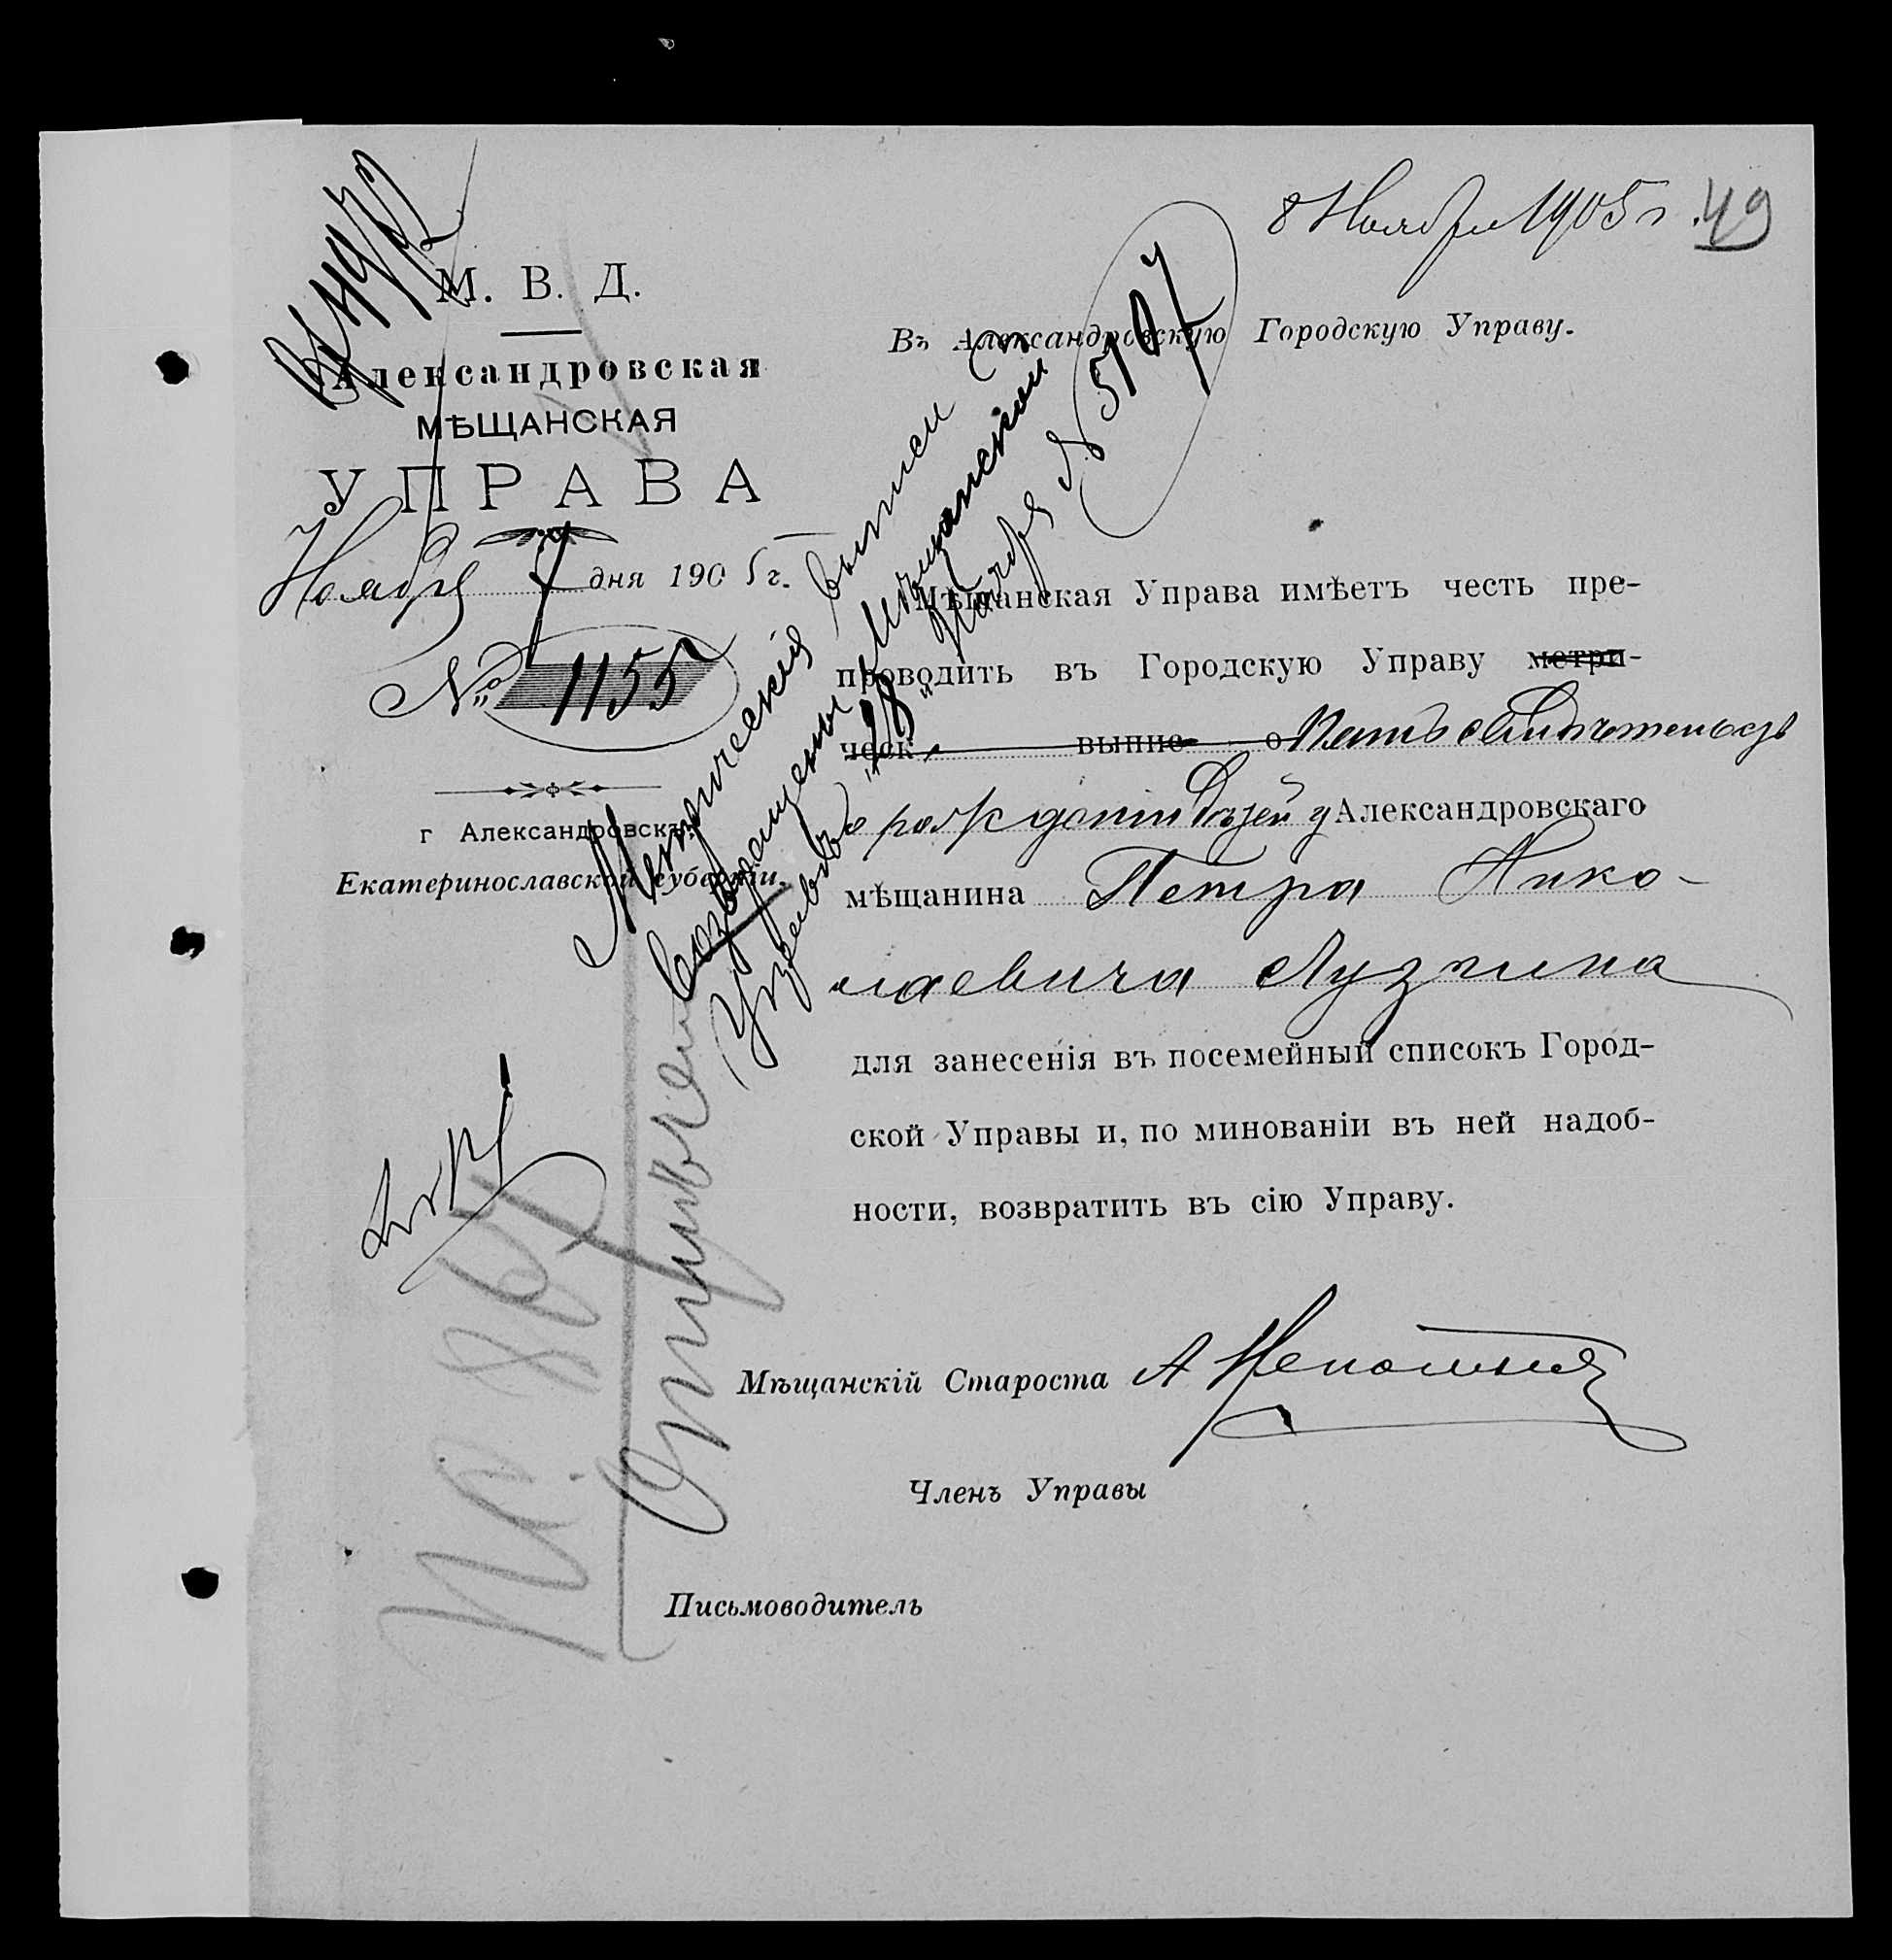 8 Ноября 1905 г. 49
М. В. Д.
Александровская
МѢЩАНСКАЯ
УПРАВА
Ноября 7 дня 1905 г.
№ 1155
г Александровскъ,
Екатеринославской губерніи.
Въ Александровскую Городскую Управу.
Мѣщанская Управа имѣетъ честь пре-
проводить въ Городскую Управу метри-
ческ выпис о Пять свидѣтельствъ
о рожденіи дѣтей у Александровскаго
мѣщанина Петра Нико-
лаевича Лузгина
для занесенія въ посемейный списокъ Город-
ской Управы и, по минованіи въ ней надоб-
ности, возвратить въ сію Управу.
Мѣщанскій Староста А
Членъ Управы
Письмоводитель
Метрическія выписи
возвращены Мѣщанской
Управѣ "28" Ноября № 5107